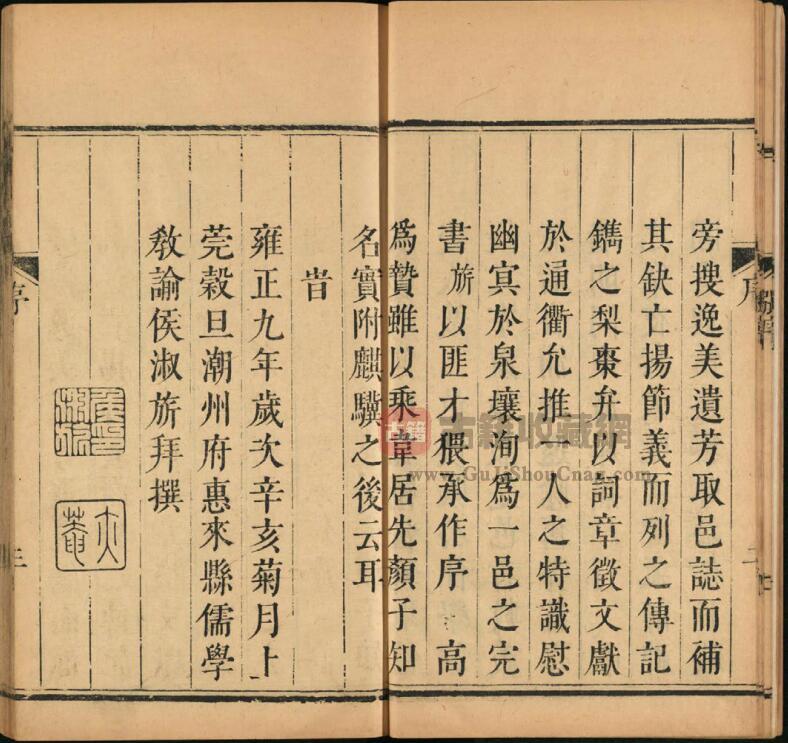 旁搜逸美遺芳取邑誌而補
其缺亡揚節義而列之傳記
鐫之梨棗弁以詞章徵文獻
於通衢允推一人之特識慰
幽㝠於泉壤洵為一邑之完
書旂以匪才猥承作序高
為贄雖以乘韋居先顏子知
名實附麒驥之後云耳
旹
雍正九年歲次辛亥菊月上
莞穀旦潮州府惠來縣儒學
教諭侯淑旂拜撰
序
二
序
三
古籍
古籍收藏網
www.GuJiShouCang.com